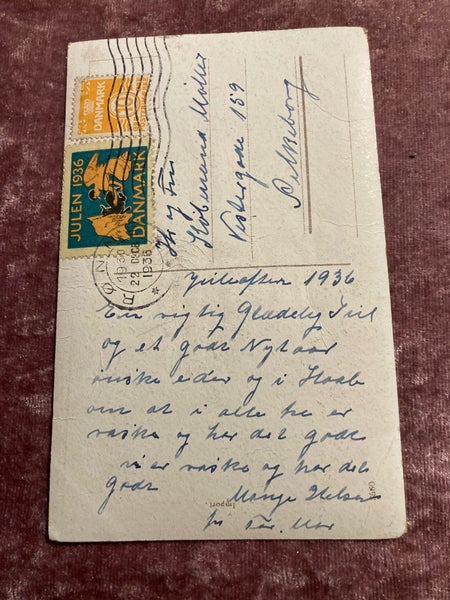 DANMARK
JULEN 1936
DANMARK
1930
22 DEC
1936
Hr og Fru
Købmand Møller
Vestergade 159
Silkeborg
Juleaften 1936
En rigtig Glædelig Jul
og et godt Nytaar
ønske eder og i Haab
om at i alle tre er
raske og har det godt
vi er raske og har det
godt Mange Hilsen
fra Far. Mor
Import.